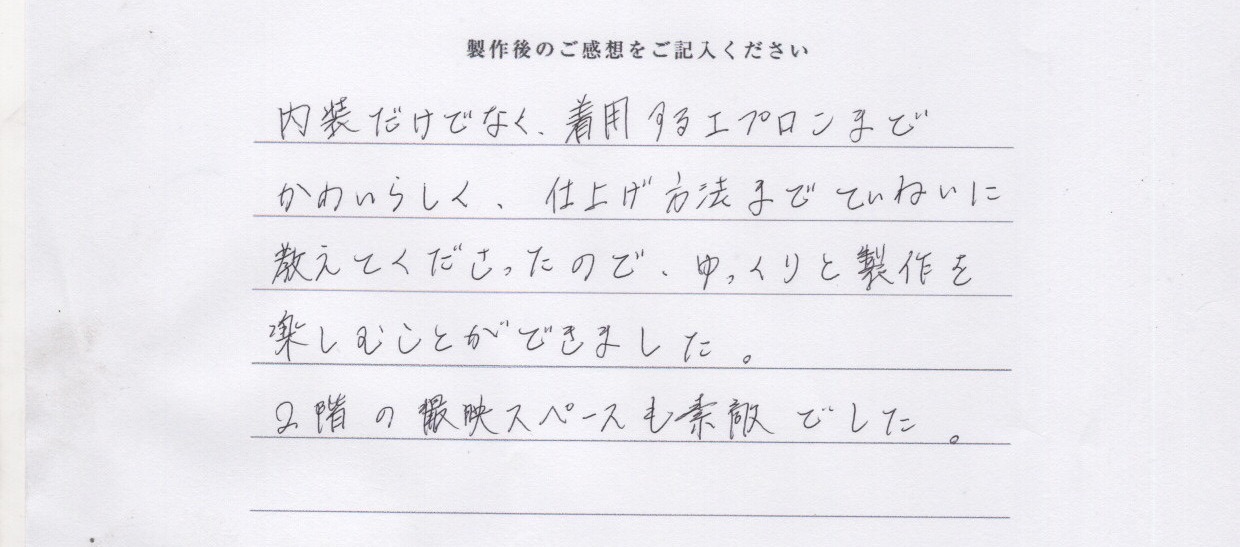 製作後のご感想をご記入ください
内装だけでなく、着用するエプロンまで
かわいらしく、仕上げ方法までていねいに
教えてくださったので、ゆっくりと製作を
楽しむことができました。
2階の撮映スペースも素敵でした。